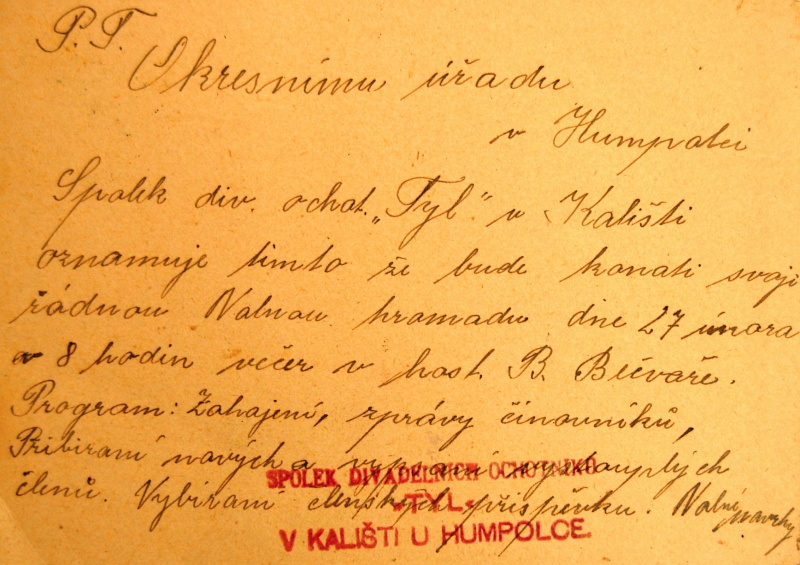 P. T.
Okresnímu úřadu
v Humpolci
Spolek div. ochot. „Tyl." v Kališti
oznamuje tímto že bude konati svoji
řádnou Valnou hromadu dne 27 února
v 8 hodin večer v host. B. Bečváře.
Program: Zahajení, zprávy činovníků,
Přibiraní nových a vystouplých
členů. Vybiraní členských příspěvku. Volné návrhy
SPOLEK DIVADELNÍCH OCHOTNÍKŮ
-TYL-
V KALIŠTI U HUMPOLCE.